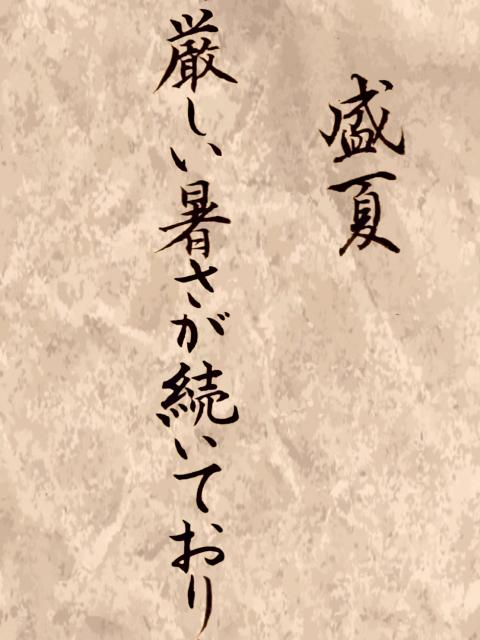 盛夏
厳しい暑さが続いており